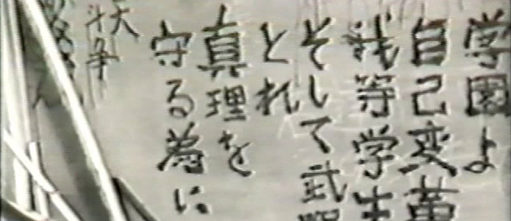 学園よ
自己変革
我等学生
そして武器
とれ
真理を
守る為に
斗争